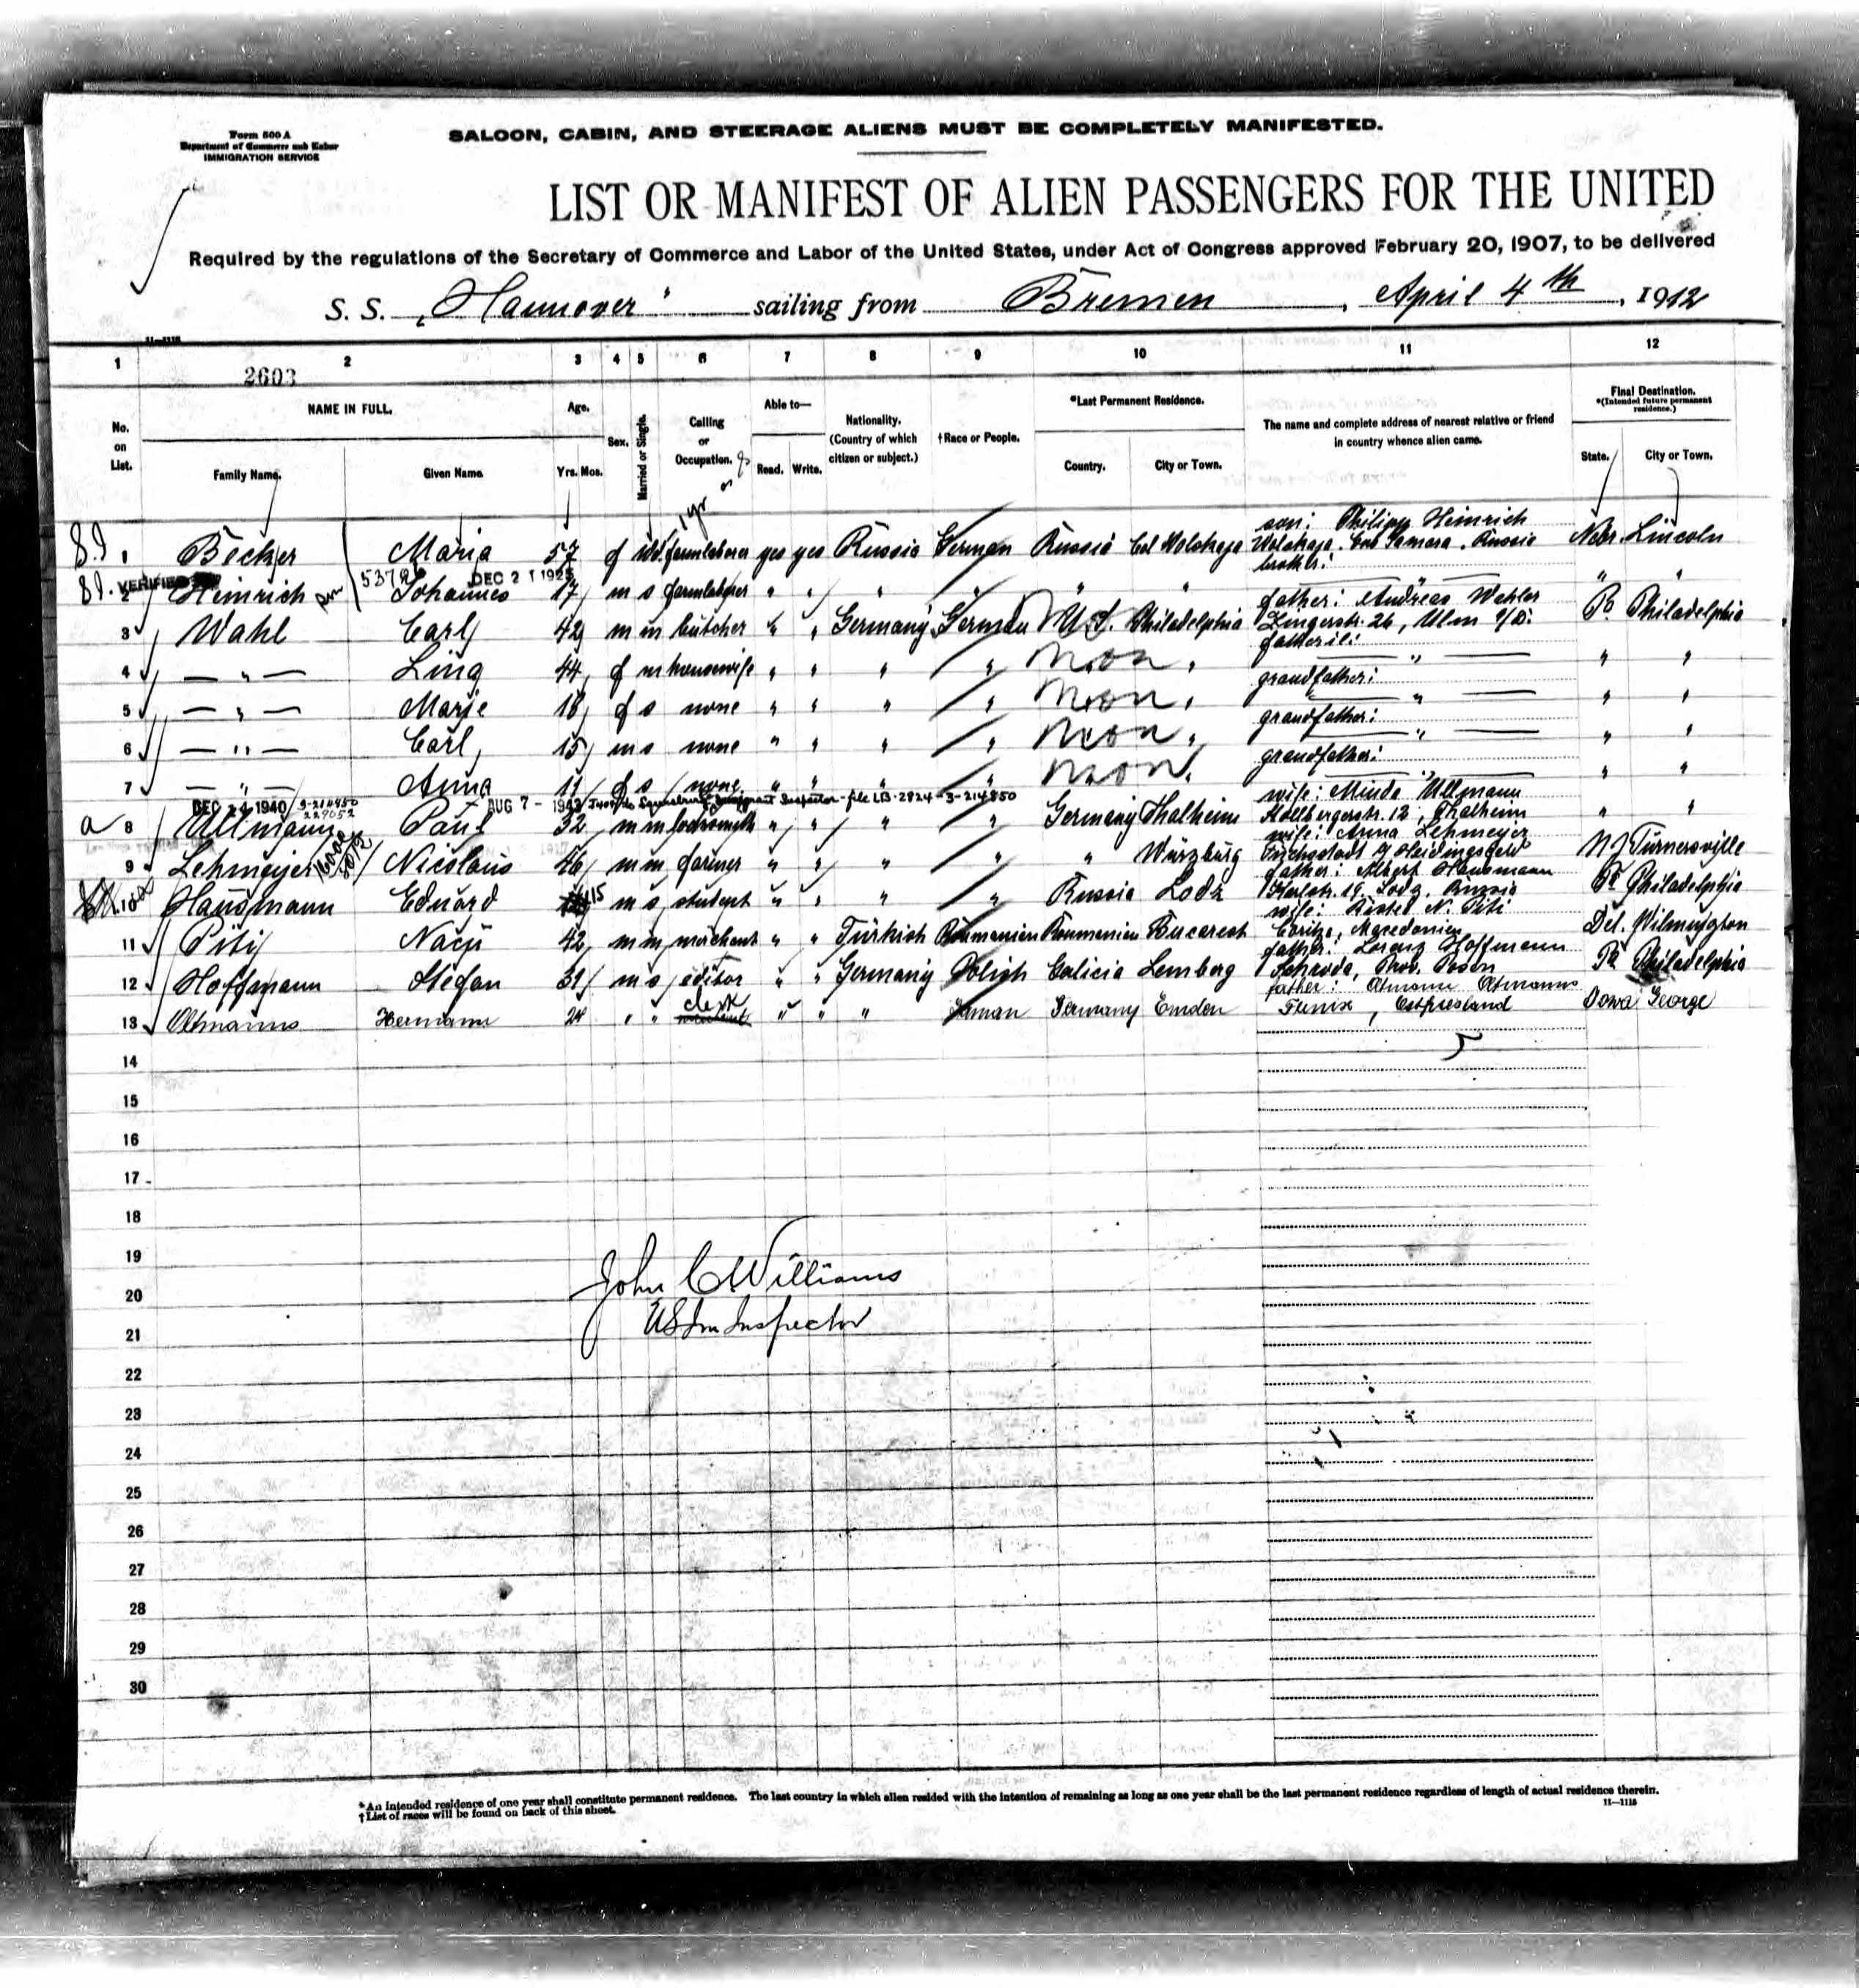 Form 500 A
Department of Commerce and Labor
IMMIGRATION SERVICE
SALOON, CABIN, AND STEERAGE ALIENS MUST BE COMPLETELY MANIFESTED.
LIST OR MANIFEST OF ALIEN PASSENGERS FOR THE UNITED
Required by the regulations of the Secretary of Commerce and Labor of the United States, under Act of Congress approved February 20, 1907, to be delivered
S. S. „Hannover" sailing from Bremen, April 4th, 1912
11—1118
1 2 3 4 5 6 7 8 9 10 11 12
2603
No. on List.
NAME IN FULL.
Family Name.
Given Name.
Age.
Yrs. Mos.
Sex.
Married or Single.
Calling or Occupation.
Able to—
Read. Write.
Nationality. (Country of which citizen or subject.)
†Race or People.
*Last Permanent Residence.
Country. City or Town.
The name and complete address of nearest relative or friend in country whence alien came.
Final Destination.
*(Intended future permanent residence.)
State. City or Town.
1 yr
son: Philipp Heinrich
S.I. 1 Becker Maria 57 f wd. farmlaborer yes yes Russia German Russia Col Wolskaja Wolskaja, Gov Samara, Russia Nebr. Lincoln
VERIFIED 53796 DEC 21 1925 brother:
S.I. 2 Heinrich Johannes 17 m s farmlaborer " " " " " " " "
father: Andreas Wahler
3 Wahl Carl 42 m m butcher " " Germany German U.S. Philadelphia Zingerstr. 26, Ulm a/D. Pa Philadelphia
4 — " — Lina 44 f m housewife " " " " Non " — " — " "
grandfather:
5 — " — Marie 18 f s none " " " " Non " — " — " "
grandfather:
6 — " — Carl 15 m s none " " " " Non " — " — " "
grandfather:
7 — " — Anna 11 f s none " " " " Non " — " — " "
DEC 24 1940 3-214450 229052 AUG 7 - 1943 Immigrant Inspector - file LB-2924-3-214450
wife: Minda Ullmann
a 8 Ullmann Paul 32 m m locksmith " " " " Germany Thalheim Stollbergerstr. 12, Thalheim " "
wife: Anna Lehmeyer
9 Lehmeyer Nicolaus 46 m m farmer " " " " " Würzburg Heidingsfeld NJ Turnersville
father: Albert Hausmann
10 Hausmann Eduard 15 m s student " " " " Russia Lodz 19, Lodz, Russia Pa Philadelphia
wife: N. Piti
11 Piti Naçu 42 m m merchant " " Turkish Roumanien Roumanien Bucarest Coritza, Macedonien Del. Wilmington
father: Lorenz Hoffmann
12 Hoffmann Stefan 31 m s editor " " Germany Polish Galicia Lemberg Schroda, Prov. Posen Pa Philadelphia
father: Oltmann Oltmanns
13 Oltmanns Hermann 24 " " clerk " " " German Germany Emden , Ostfriesland Iowa George
14
15
16
17
18
19
John C Williams
20
US Im Inspector
21
22
23
24
25
26
27
28
29
30
*An intended residence of one year shall constitute permanent residence. The last country in which alien resided with the intention of remaining as long as one year shall be the last permanent residence regardless of length of actual residence therein.
†List of races will be found on back of this sheet.
11—1118